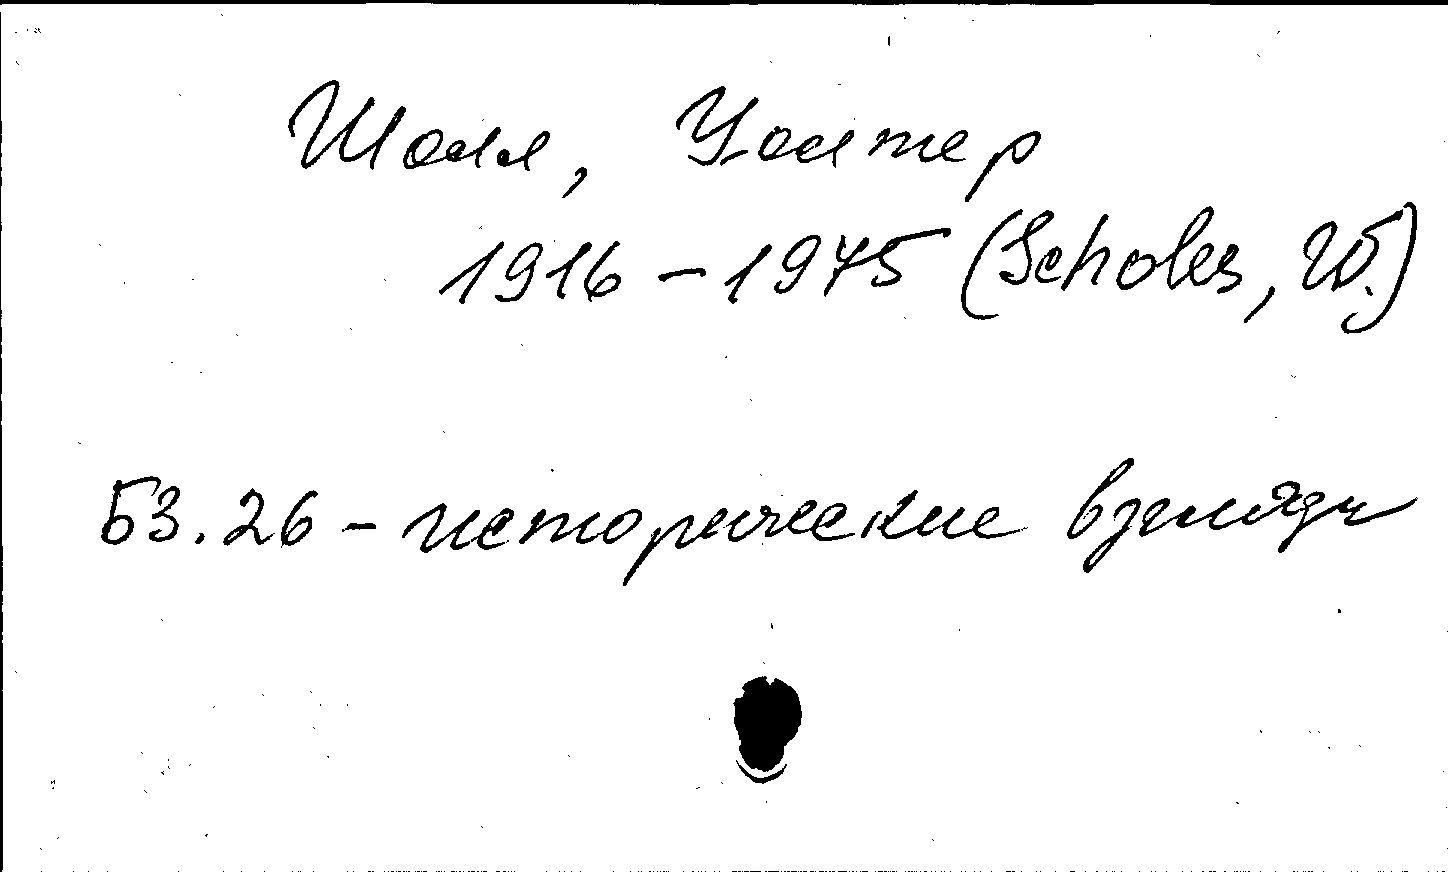 Шолл, Уолтер
1916-1975 (Scholes, W.)
Б3.26 - исторические взгляды